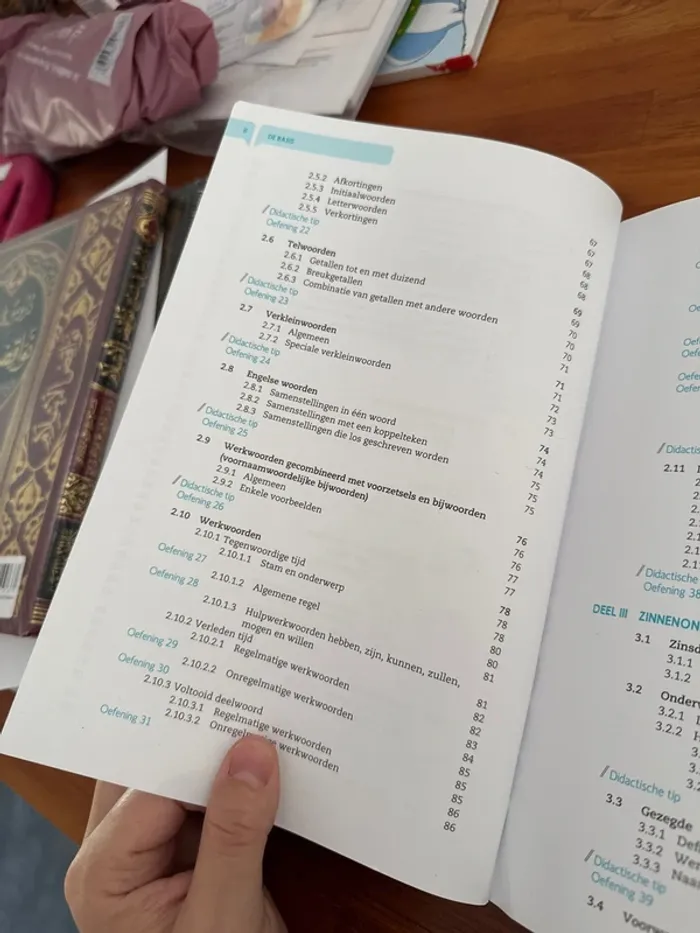 8 DE BASIS
2.5.2 Afkortingen 67
2.5.3 Initiaalwoorden 67
2.5.4 Letterwoorden 67
2.5.5 Verkortingen 68
Didactische tip 68
Oefening 22 68
2.6 Telwoorden 69
2.6.1 Getallen tot en met duizend 69
2.6.2 Breukgetallen 70
2.6.3 Combinatie van getallen met andere woorden 70
Didactische tip 70
Oefening 23 71
2.7 Verkleinwoorden 71
2.7.1 Algemeen 71
2.7.2 Speciale verkleinwoorden 72
Didactische tip 73
Oefening 24 73
2.8 Engelse woorden 74
2.8.1 Samenstellingen in één woord 74
2.8.2 Samenstellingen met een koppelteken 74
2.8.3 Samenstellingen die los geschreven worden 75
Didactische tip 75
Oefening 25 75
2.9 Werkwoorden gecombineerd met voorzetsels en bijwoorden
(voornaamwoordelijke bijwoorden) 76
2.9.1 Algemeen 76
2.9.2 Enkele voorbeelden 76
Didactische tip 77
Oefening 26 77
2.10 Werkwoorden 78
2.10.1 Tegenwoordige tijd 78
2.10.1.1 Stam en onderwerp 78
Oefening 27 80
2.10.1.2 Algemene regel 80
Oefening 28 81
2.10.1.3 Hulpwerkwoorden hebben, zijn, kunnen, zullen,
mogen en willen 81
2.10.2 Verleden tijd 82
2.10.2.1 Regelmatige werkwoorden 82
Oefening 29 83
2.10.2.2 Onregelmatige werkwoorden 84
Oefening 30 85
2.10.3 Voltooid deelwoord 85
2.10.3.1 Regelmatige werkwoorden 85
2.10.3.2 Onregelmatige werkwoorden 86
Oefening 31 86
Didactis
2.11
Didactische
Oefening 38
DEEL III ZINNENON
3.1 Zinsd
3.1.1
3.1.2
3.2 Onderw
3.2.1
3.2.2
Didactische tip
3.3 Gezegde
3.3.1 Defi
3.3.2 Wer
3.3.3 Naa
Didactische tip
Oefening 39
3.4 Voorw